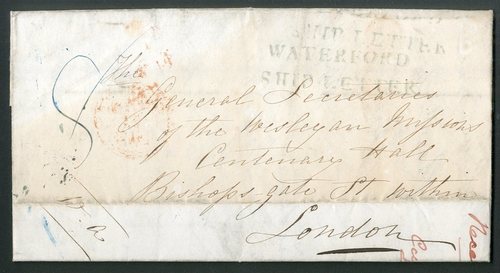 SHIP LETTER
WATERFORD
SHIP LETTER
The
General Secretaries
of the Wesleyan Missions
Centenary Hall
Bishops-gate St within
London
8